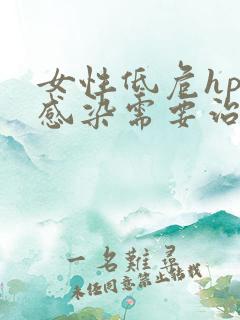 女性低危hp
感染需要治
一名難尋
未经同意禁止搬载